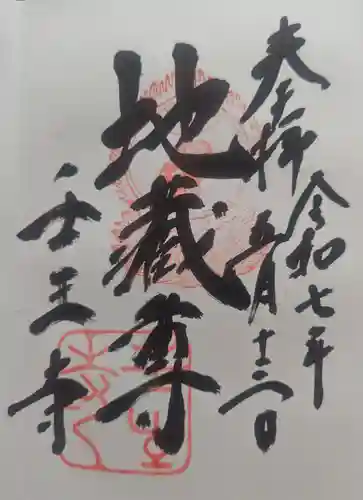 奉拝
令和七年
五月十二日
地蔵尊
壬生寺